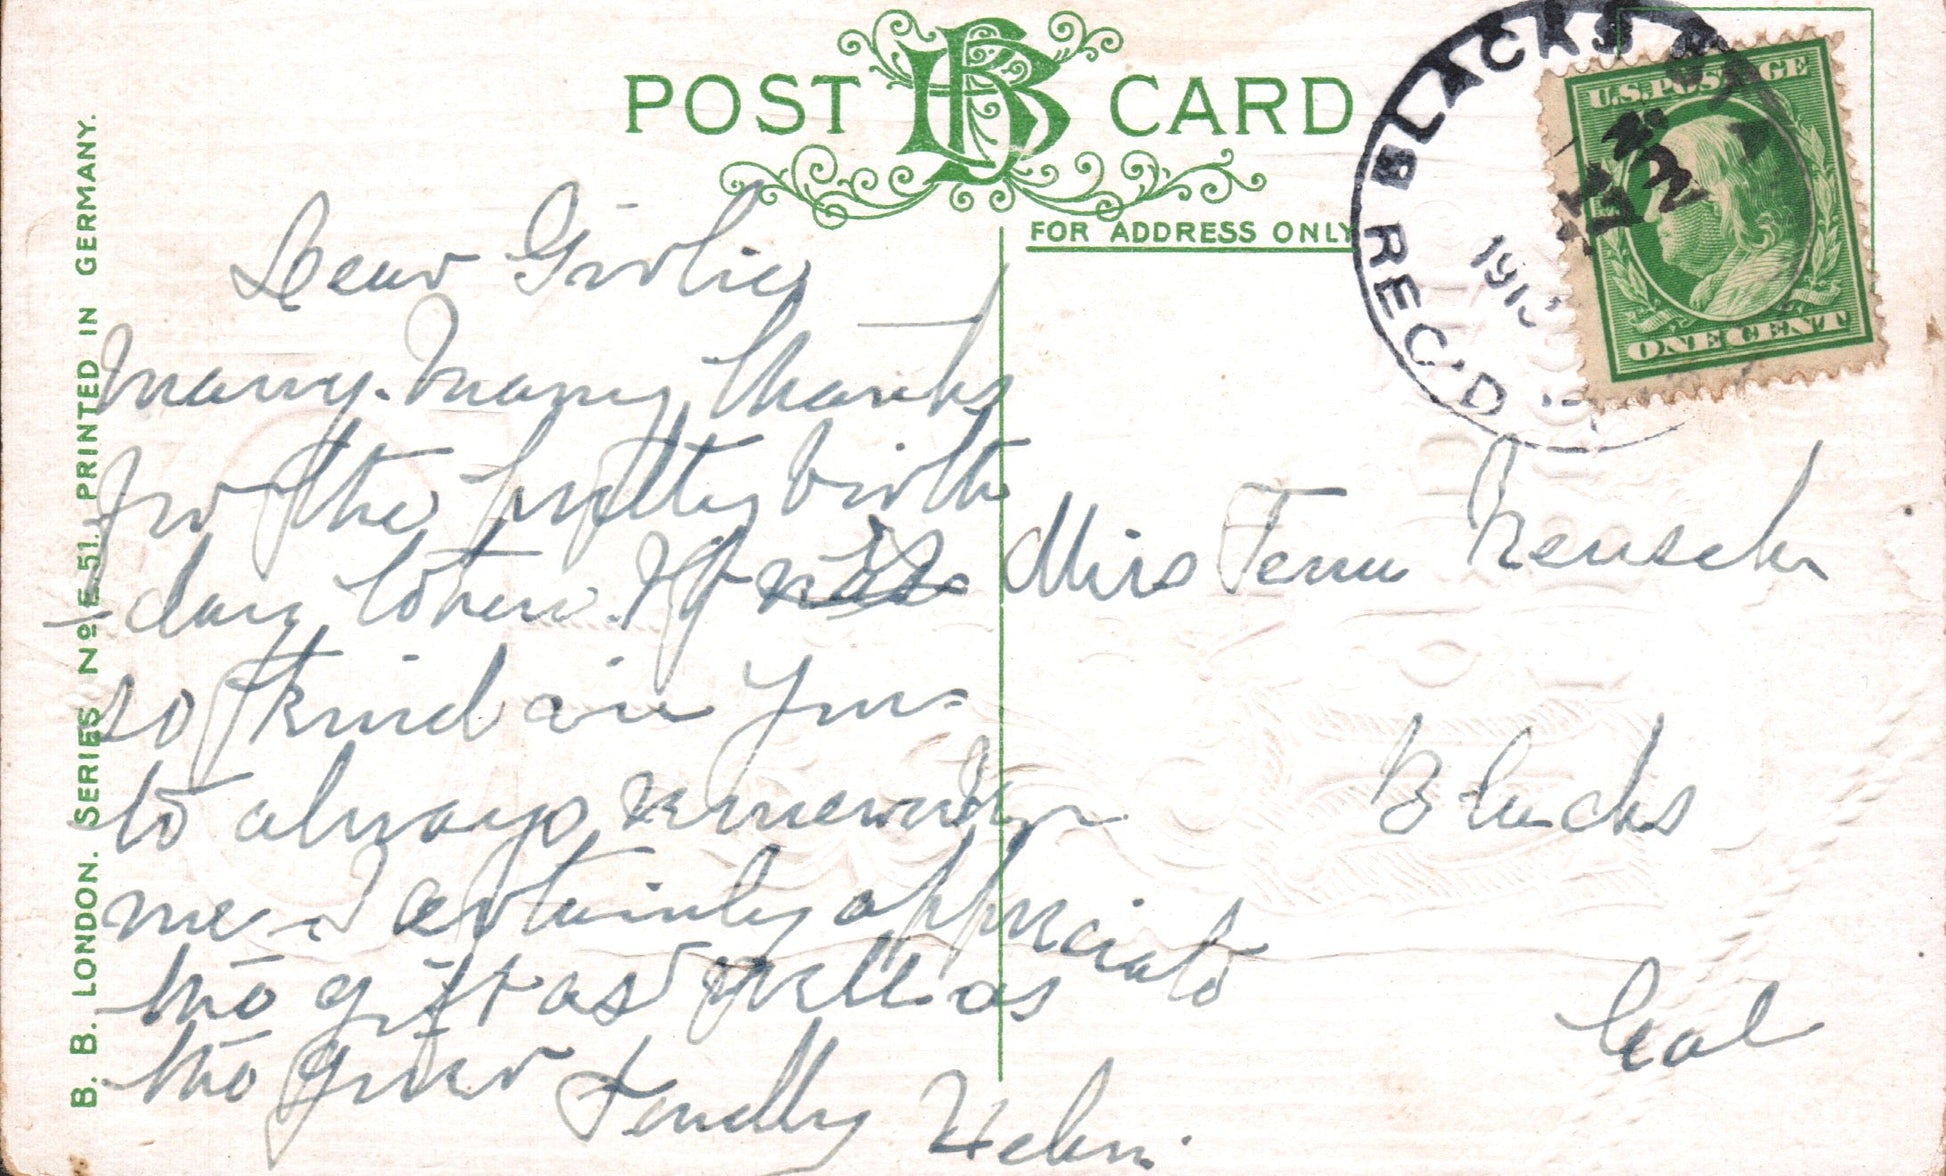 POST CARD
BB
FOR ADDRESS ONLY
BLACKS
REC'D
191
U.S. POSTAGE
ONE CENT
B. B. LONDON. SERIES No E. 51. PRINTED IN GERMANY.
Dear Girlie,
Many. Many thanks
for the pretty birth
-day token. It
so kind in you
to always remember
me - I certainly appreciate
the gift as well as
the giver
Fondly Helen.
Miss Fern
Blacks
Cal